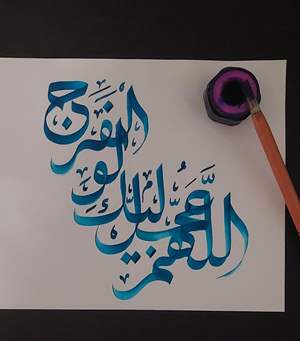 اللهم
عجل
لولیک
الفرج